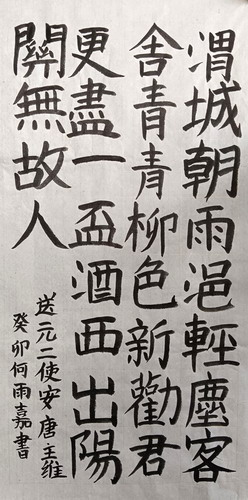 渭城朝雨浥輕塵客
舍青青柳色新勸君
更盡一盃酒西出陽
關無故人
送元二使安唐王維
癸卯何雨嘉書